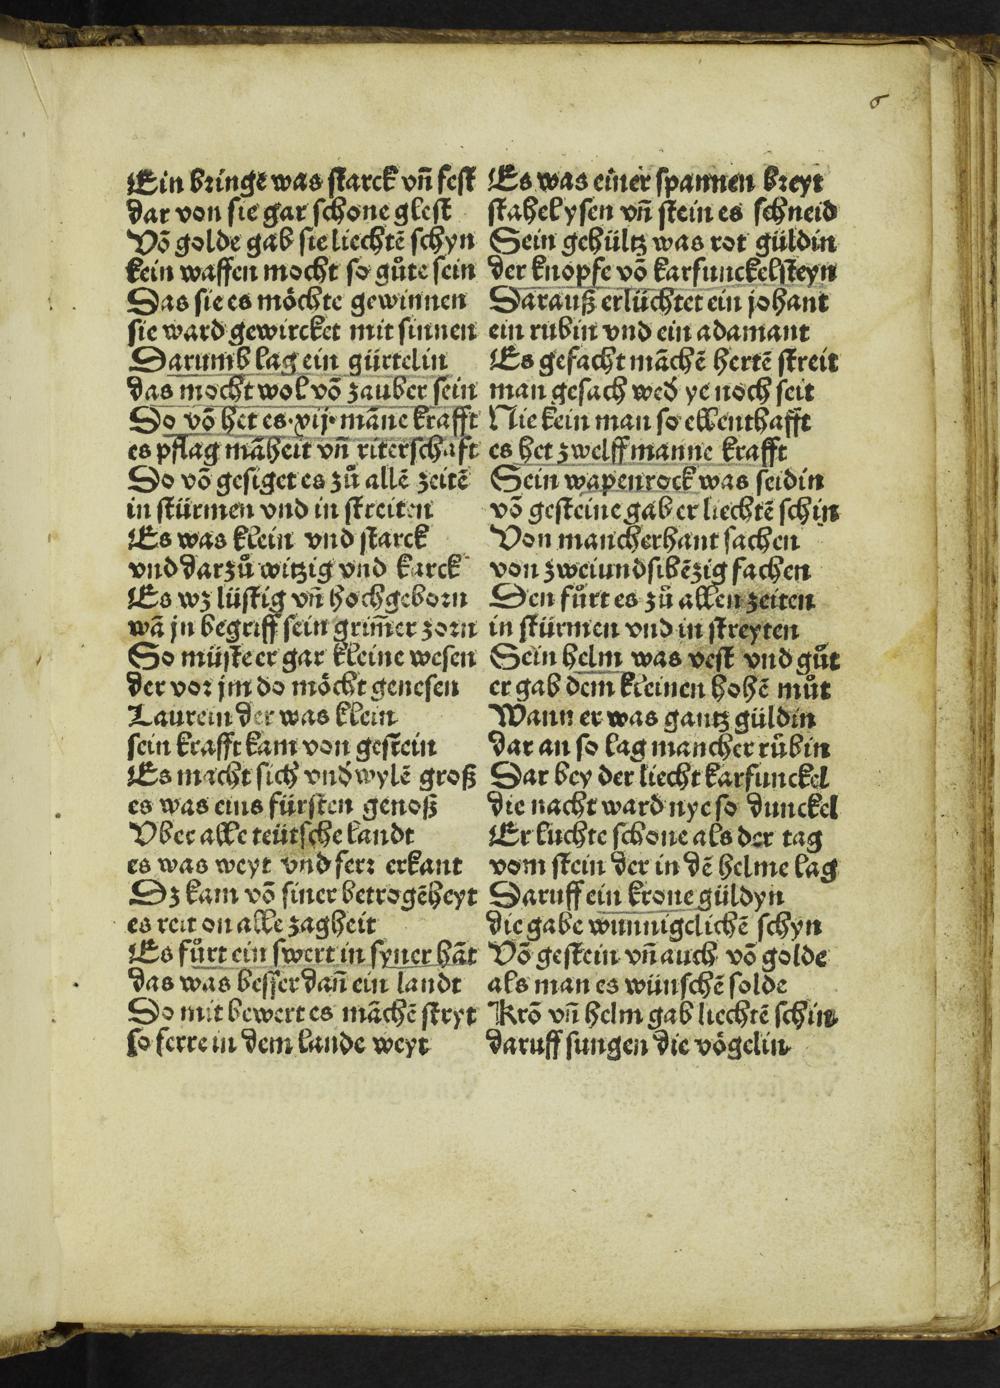 6
Ein bringe was starck vñ fest
dar von sie gar schone glest
Võ golde gab sie liechtẽ schyn
kein waffen mocht so gůte sein
Das sie es möchte gewinnen
sie ward gewircket mit sinnen
Darumb lag ein gürtelin
das mocht wol võ zauber sein
Do võ het es·xij·mãne krafft
es pflag mãheit vñ riterschaft
Do võ gesiget es zů allẽ zeitẽ
in stürmen vnd in streiten
Es was klein vnd starck
vnd darzů witzig vnd karck
Es wz lüstig vñ hochgeborn
wã jn begriff sein grim̃er zorn
So müste er gar kleine wesen
der vor jm do möcht genesen
Laurein der was klein
sein krafft kam von gestein
Es macht sich vnd wylẽ groß
es was eins fürsten genoß
Vber alle teütsche landt
es was weyt vnd ferr erkant
Dz kam võ siner betrogẽheyt
es reit on alle zagheit
Es fůrt ein swert in syner hãt
das was besser dañ ein landt
Do mit bewert es mãchẽ stryt
so ferre in dem lande weyt
Es was einer spannen breyt
stahel ysen vñ stein es schneid
Sein gehültz was rot güldin
der knopfe võ karfunckelsteyn
Darauß erlüchtet ein johant
ein rubin vnd ein adamant
Es gefacht mãchẽ hertẽ streit
man gesach wed ye noch seit
Nie kein man so ellenthafft
es het zwelff manne krafft
Sein wapenrock was seidin
võ gesteine gab er liechtẽ schin
Von mancherhant sachen
von zweiundsibẽzig fachen
Den fůrt es zů allen zeiten
in stürmen vnd in streyten
Sein helm was vest vnd gůt
er gab dem kleinen hohẽ můt
Wann er was gantz güldin
dar an so lag mancher růbin
Dar bey der liecht karfunckel
die nacht ward nye so dunckel
Er luchte schone als der tag
vom stein der in dẽ helme lag
Daruff ein krone güldyn
die gabe wunnigclichẽ schyn
Võ gestein vñ auch võ golde
als man es wünschẽ solde
Krõ vñ helm gab liechtẽ schin
daruff sungen die vögelin